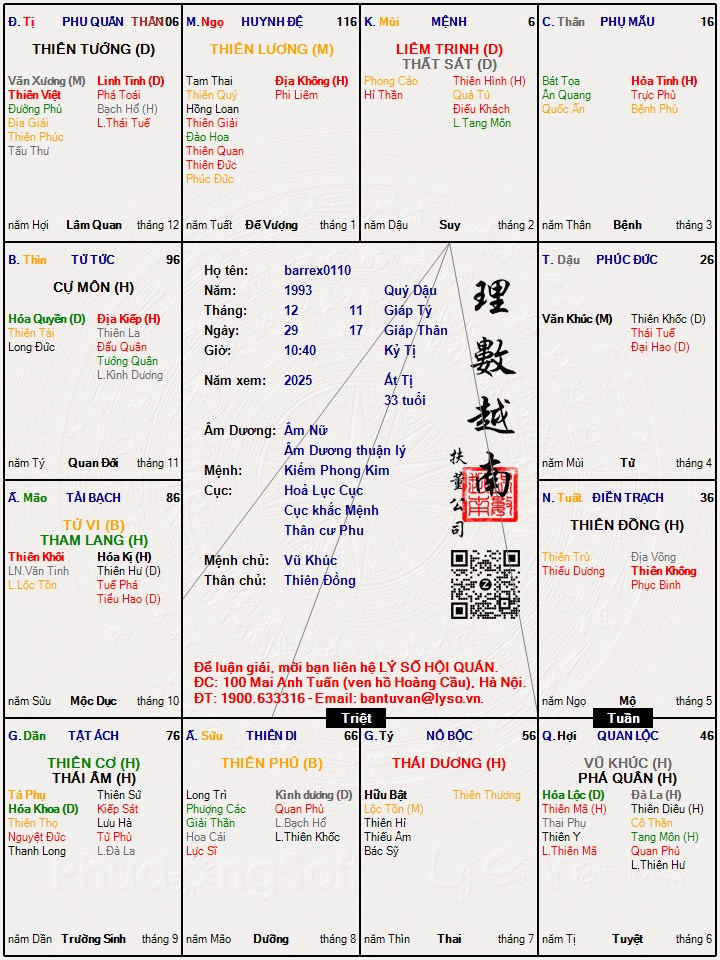 Đ. Tị PHU QUÂN THÂN 106
THIÊN TƯỚNG (D)
Văn Xương (M) Linh Tinh (D)
Thiên Việt Phá Toái
Đường Phù Bạch Hổ (H)
Địa Giải L.Thái Tuế
Thiên Phúc
Tấu Thư
năm Hợi Lâm Quan tháng 12
M. Ngọ HUYNH ĐỆ 116
THIÊN LƯƠNG (M)
Tam Thai Địa Không (H)
Thiên Quý Phi Liêm
Hồng Loan
Thiên Giải
Đào Hoa
Thiên Quan
Thiên Đức
Phúc Đức
năm Tuất Đế Vượng tháng 1
K. Mùi MỆNH 6
LIÊM TRINH (D)
THẤT SÁT (D)
Phong Cáo Thiên Hình (H)
Hỉ Thần Quả Tú
Điếu Khách
L.Tang Môn
năm Dậu Suy tháng 2
C. Thân PHỤ MẪU 16
Bát Tọa Hỏa Tinh (H)
Ân Quang Trực Phù
Quốc Ấn Bệnh Phù
năm Thân Bệnh tháng 3
B. Thìn TỬ TỨC 96
CỰ MÔN (H)
Hóa Quyền (D) Địa Kiếp (H)
Thiên Tài Thiên La
Long Đức Đẩu Quân
Tướng Quân
L.Kình Dương
năm Tý Quan Đới tháng 11
Họ tên: barrex0110
Năm: 1993 Quý Dậu
Tháng: 12 11 Giáp Tý
Ngày: 29 17 Giáp Thân
Giờ: 10:40 Kỷ Tị
Năm xem: 2025 Ất Tị
33 tuổi
Âm Dương: Âm Nữ
Âm Dương thuận lý
Mệnh: Kiếm Phong Kim
Cục: Hoả Lục Cục
Cục khắc Mệnh
Thân cư Phu
Mệnh chủ: Vũ Khúc
Thân chủ: Thiên Đồng
理數越南
扶董公司
Để luận giải, mời bạn liên hệ LÝ SỐ HỘI QUÁN.
ĐC: 100 Mai Anh Tuấn (ven hồ Hoàng Cầu), Hà Nội.
ĐT: 1900.633316 - Email: bantuvan@lyso.vn.
T. Dậu PHÚC ĐỨC 26
Văn Khúc (M) Thiên Khốc (D)
Thái Tuế
Đại Hao (D)
năm Mùi Tử tháng 4
Ấ. Mão TÀI BẠCH 86
TỬ VI (B)
THAM LANG (H)
Thiên Khôi Hóa Kị (H)
LN.Văn Tinh Thiên Hư (D)
L.Lộc Tồn Tuế Phá
Tiểu Hao (D)
năm Sửu Mộc Dục tháng 10
N. Tuất ĐIỀN TRẠCH 36
THIÊN ĐỒNG (H)
Thiên Trù Địa Võng
Thiếu Dương Thiên Không
Phục Binh
năm Ngọ Mộ tháng 5
Triệt
Tuần
G. Dần TẬT ÁCH 76
THIÊN CƠ (H)
THÁI ÂM (H)
Tả Phụ Thiên Sứ
Hóa Khoa (D) Kiếp Sát
Thiên Thọ Lưu Hà
Nguyệt Đức Tử Phù
Thanh Long L.Đà La
năm Dần Trường Sinh tháng 9
Ấ. Sửu THIÊN DI 66
THIÊN PHỦ (B)
Long Trì Kình dương (D)
Phượng Các Quan Phù
Giải Thần L.Bạch Hổ
Hoa Cái L.Thiên Khốc
Lực Sĩ
năm Mão Dưỡng tháng 8
G. Tý NÔ BỘC 56
THÁI DƯƠNG (H)
Hữu Bật Thiên Thương
Lộc Tồn (M)
Thiên Hỉ
Thiếu Âm
Bác Sỹ
năm Thìn Thai tháng 7
Q. Hợi QUAN LỘC 46
VŨ KHÚC (H)
PHÁ QUÂN (H)
Hóa Lộc (D) Đà La (H)
Thiên Mã (H) Thiên Diêu (H)
Thai Phụ Cô Thần
Thiên Y Tang Môn (H)
L.Thiên Mã Quan Phủ
L.Thiên Hư
năm Tị Tuyệt tháng 6